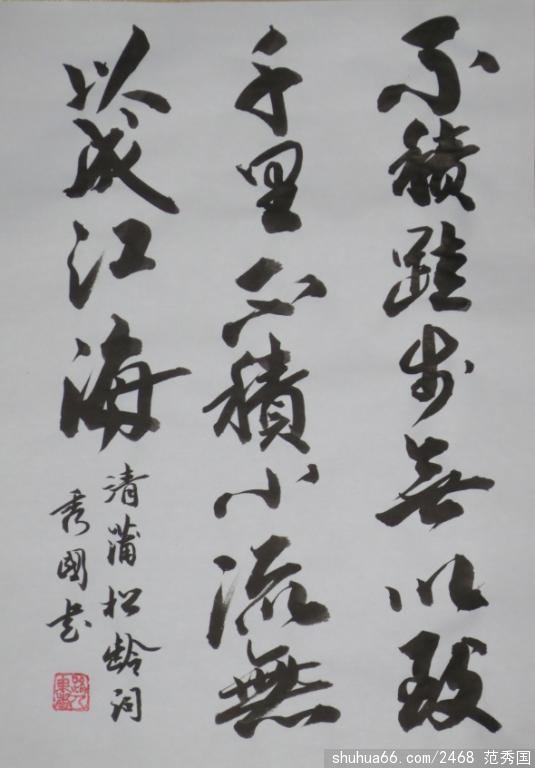 不積跬步無以致
千里不積小流無
以成江海
清蒲松龄词
秀國书
shuhua66.com/2468 范秀国